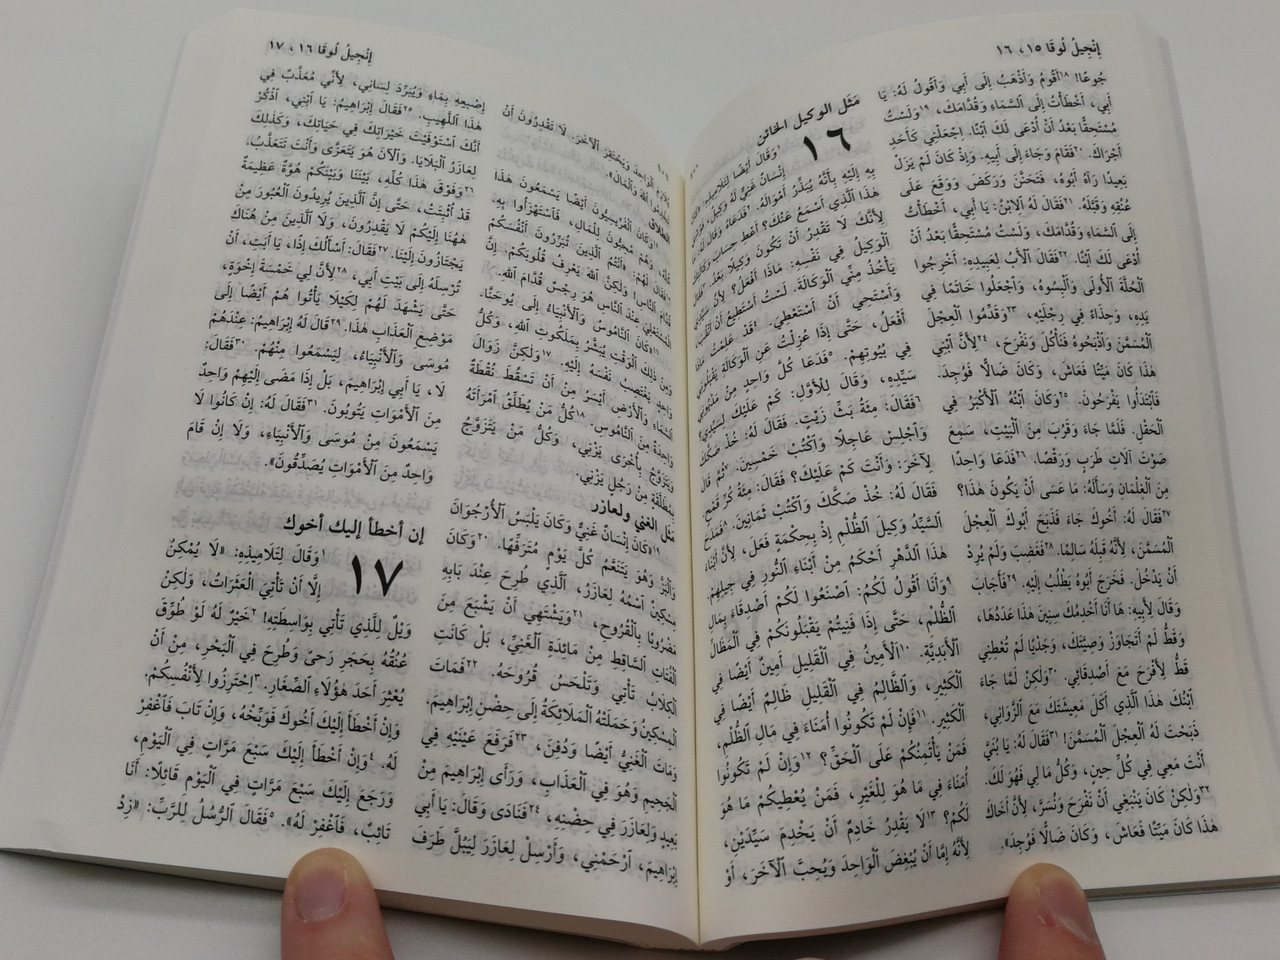 إِنْجِيلُ لُوقَا ١٥، ١٦
جُوعًا! ١٨أَقُومُ وَأَذْهَبُ إِلَى أَبِي وَأَقُولُ لَهُ: يَا
أَبِي، أَخْطَأْتُ إِلَى ٱلسَّمَاءِ وَقُدَّامَكَ، ١٩وَلَسْتُ
مُسْتَحِقًّا بَعْدُ أَنْ أُدْعَى لَكَ ٱبْنًا. اِجْعَلْنِي كَأَحَدِ
أَجْرَاكَ. ٢٠فَقَامَ وَجَاءَ إِلَى أَبِيهِ. وَإِذْ كَانَ لَمْ يَزَلْ
بَعِيدًا رَآهُ أَبُوهُ، فَتَحَنَّنَ وَرَكَضَ وَوَقَعَ عَلَى
عُنُقِهِ وَقَبَّلَهُ. ٢١فَقَالَ لَهُ ٱلِٱبْنُ: يَا أَبِي، أَخْطَأْتُ
إِلَى ٱلسَّمَاءِ وَقُدَّامَكَ، وَلَسْتُ مُسْتَحِقًّا بَعْدُ أَنْ
أُدْعَى لَكَ ٱبْنًا. ٢٢فَقَالَ ٱلْأَبُ لِعَبِيدِهِ: أَخْرِجُوا
ٱلْحُلَّةَ ٱلْأُولَى وَأَلْبِسُوهُ، وَٱجْعَلُوا خَاتَمًا فِي
يَدِهِ، وَحِذَاءً فِي رِجْلَيْهِ، ٢٣وَقَدِّمُوا ٱلْعِجْلَ
ٱلْمُسَمَّنَ وَٱذْبَحُوهُ فَنَأْكُلَ وَنَفْرَحَ، ٢٤لِأَنَّ ٱبْنِي
هَذَا كَانَ مَيِّتًا فَعَاشَ، وَكَانَ ضَالًّا فَوُجِدَ.
فَٱبْتَدَأُوا يَفْرَحُونَ. ٢٥وَكَانَ ٱبْنُهُ ٱلْأَكْبَرُ فِي
ٱلْحَقْلِ. فَلَمَّا جَاءَ وَقَرُبَ مِنَ ٱلْبَيْتِ، سَمِعَ
صَوْتَ آلَاتِ طَرَبٍ وَرَقْصًا. ٢٦فَدَعَا وَاحِدًا
مِنَ ٱلْغِلْمَانِ وَسَأَلَهُ: مَا عَسَى أَنْ يَكُونَ هَذَا؟
٢٧فَقَالَ لَهُ: أَخُوكَ جَاءَ فَذَبَحَ أَبُوكَ ٱلْعِجْلَ
ٱلْمُسَمَّنَ، لِأَنَّهُ قَبِلَهُ سَالِمًا. ٢٨فَغَضِبَ وَلَمْ يُرِدْ
أَنْ يَدْخُلَ. فَخَرَجَ أَبُوهُ يَطْلُبُ إِلَيْهِ. ٢٩فَأَجَابَ
وَقَالَ لِأَبِيهِ: هَا أَنَا أَخْدِمُكَ سِنِينَ هَذَا عَدَدُهَا،
وَقَطُّ لَمْ أَتَجَاوَزْ وَصِيَّتَكَ، وَجَدْيًا لَمْ تُعْطِنِي
قَطُّ لِأَفْرَحَ مَعَ أَصْدِقَائِي. ٣٠وَلَكِنْ لَمَّا جَاءَ
ٱبْنُكَ هَذَا ٱلَّذِي أَكَلَ مَعِيشَتَكَ مَعَ ٱلزَّوَانِي،
ذَبَحْتَ لَهُ ٱلْعِجْلَ ٱلْمُسَمَّنَ! ٣١فَقَالَ لَهُ: يَا بُنَيَّ
أَنْتَ مَعِي فِي كُلِّ حِينٍ، وَكُلُّ مَا لِي فَهُوَ لَكَ.
٣٢وَلَكِنْ كَانَ يَنْبَغِي أَنْ نَفْرَحَ وَنُسَرَّ، لِأَنَّ أَخَاكَ
هَذَا كَانَ مَيِّتًا فَعَاشَ، وَكَانَ ضَالًّا فَوُجِدَ».
مَثَل الوكيل الخائن
١٦ ١وَقَالَ أَيْضًا لِتَلَامِيذِهِ:
إِنْسَانٌ غَنِيٌّ لَهُ وَكِيلٌ،
بِهِ إِلَيْهِ بِأَنَّهُ يُبَذِّرُ أَمْوَالَهُ. ٢فَدَعَاهُ وَقَالَ لَهُ:
هَذَا ٱلَّذِي أَسْمَعُ عَنْكَ؟ أَعْطِ حِسَابَ وَكَالَتِكَ
لِأَنَّكَ لَا تَقْدِرُ أَنْ تَكُونَ وَكِيلًا بَعْدُ. ٣فَقَالَ
ٱلْوَكِيلُ فِي نَفْسِهِ: مَاذَا أَفْعَلُ؟ لِأَنَّ سَيِّدِي
يَأْخُذُ مِنِّي ٱلْوَكَالَةَ. لَسْتُ أَسْتَطِيعُ أَنْ أَنْقُبَ،
وَأَسْتَحِي أَنْ أَسْتَعْطِيَ. ٤قَدْ عَلِمْتُ مَاذَا
أَفْعَلُ، حَتَّى إِذَا عُزِلْتُ عَنِ ٱلْوَكَالَةِ يَقْبَلُونِي
فِي بُيُوتِهِمْ. ٥فَدَعَا كُلَّ وَاحِدٍ مِنْ مَدْيُونِي
سَيِّدِهِ، وَقَالَ لِلْأَوَّلِ: كَمْ عَلَيْكَ لِسَيِّدِي؟
٦فَقَالَ: مِئَةُ بَثِّ زَيْتٍ. فَقَالَ لَهُ: خُذْ صَكَّكَ
وَٱجْلِسْ عَاجِلًا وَٱكْتُبْ خَمْسِينَ. ٧ثُمَّ قَالَ
لِآخَرَ: وَأَنْتَ كَمْ عَلَيْكَ؟ فَقَالَ: مِئَةُ كُرِّ قَمْحٍ.
فَقَالَ لَهُ: خُذْ صَكَّكَ وَٱكْتُبْ ثَمَانِينَ. ٨فَمَدَحَ
ٱلسَّيِّدُ وَكِيلَ ٱلظُّلْمِ إِذْ بِحِكْمَةٍ فَعَلَ، لِأَنَّ أَبْنَاءَ
هَذَا ٱلدَّهْرِ أَحْكَمُ مِنْ أَبْنَاءِ ٱلنُّورِ فِي جِيلِهِمْ.
٩وَأَنَا أَقُولُ لَكُمُ: ٱصْنَعُوا لَكُمْ أَصْدِقَاءَ بِمَالِ
ٱلظُّلْمِ، حَتَّى إِذَا فَنِيتُمْ يَقْبَلُونَكُمْ فِي ٱلْمَظَالِّ
ٱلْأَبَدِيَّةِ. ١٠اَلْأَمِينُ فِي ٱلْقَلِيلِ أَمِينٌ أَيْضًا فِي
ٱلْكَثِيرِ، وَٱلظَّالِمُ فِي ٱلْقَلِيلِ ظَالِمٌ أَيْضًا فِي
ٱلْكَثِيرِ. ١١فَإِنْ لَمْ تَكُونُوا أُمَنَاءَ فِي مَالِ ٱلظُّلْمِ،
فَمَنْ يَأْتَمِنُكُمْ عَلَى ٱلْحَقِّ؟ ١٢وَإِنْ لَمْ تَكُونُوا
أُمَنَاءَ فِي مَا هُوَ لِلْغَيْرِ، فَمَنْ يُعْطِيكُمْ مَا هُوَ
لَكُمْ؟ ١٣لَا يَقْدِرُ خَادِمٌ أَنْ يَخْدِمَ سَيِّدَيْنِ،
لِأَنَّهُ إِمَّا أَنْ يُبْغِضَ ٱلْوَاحِدَ وَيُحِبَّ ٱلْآخَرَ، أَوْ
إِنْجِيلُ لُوقَا ١٦، ١٧
يُلَازِمَ ٱلْوَاحِدَ وَيَحْتَقِرَ ٱلْآخَرَ. لَا تَقْدِرُونَ أَنْ
تَخْدِمُوا ٱللهَ وَٱلْمَالَ».
الطلاق
١٤وَكَانَ ٱلْفَرِّيسِيُّونَ أَيْضًا يَسْمَعُونَ هَذَا
كُلَّهُ، وَهُمْ مُحِبُّونَ لِلْمَالِ، فَٱسْتَهْزَأُوا بِهِ.
١٥فَقَالَ لَهُمْ: «أَنْتُمُ ٱلَّذِينَ تُبَرِّرُونَ أَنْفُسَكُمْ
قُدَّامَ ٱلنَّاسِ! وَلَكِنَّ ٱللهَ يَعْرِفُ قُلُوبَكُمْ. إِنَّ
ٱلْمُسْتَعْلِيَ عِنْدَ ٱلنَّاسِ هُوَ رِجْسٌ قُدَّامَ ٱللهِ.
١٦«كَانَ ٱلنَّامُوسُ وَٱلْأَنْبِيَاءُ إِلَى يُوحَنَّا.
وَمِنْ ذَلِكَ ٱلْوَقْتِ يُبَشَّرُ بِمَلَكُوتِ ٱللهِ، وَكُلُّ
وَاحِدٍ يَغْتَصِبُ نَفْسَهُ إِلَيْهِ. ١٧وَلَكِنَّ زَوَالَ
ٱلسَّمَاءِ وَٱلْأَرْضِ أَيْسَرُ مِنْ أَنْ تَسْقُطَ نُقْطَةٌ
وَاحِدَةٌ مِنَ ٱلنَّامُوسِ. ١٨كُلُّ مَنْ يُطَلِّقُ ٱمْرَأَتَهُ
وَيَتَزَوَّجُ بِأُخْرَى يَزْنِي، وَكُلُّ مَنْ يَتَزَوَّجُ
بِمُطَلَّقَةٍ مِنْ رَجُلٍ يَزْنِي.
مَثَل الغني ولعازر
١٩«كَانَ إِنْسَانٌ غَنِيٌّ وَكَانَ يَلْبَسُ ٱلْأُرْجُوَانَ
وَٱلْبَزَّ وَهُوَ يَتَنَعَّمُ كُلَّ يَوْمٍ مُتَرَفِّهًا. ٢٠وَكَانَ
مِسْكِينٌ ٱسْمُهُ لِعَازَرُ، ٱلَّذِي طُرِحَ عِنْدَ بَابِهِ
مَضْرُوبًا بِٱلْقُرُوحِ، ٢١وَيَشْتَهِي أَنْ يَشْبَعَ مِنَ
ٱلْفُتَاتِ ٱلسَّاقِطِ مِنْ مَائِدَةِ ٱلْغَنِيِّ، بَلْ كَانَتِ
ٱلْكِلَابُ تَأْتِي وَتَلْحَسُ قُرُوحَهُ. ٢٢فَمَاتَ
ٱلْمِسْكِينُ وَحَمَلَتْهُ ٱلْمَلَائِكَةُ إِلَى حِضْنِ إِبْرَاهِيمَ.
وَمَاتَ ٱلْغَنِيُّ أَيْضًا وَدُفِنَ، ٢٣فَرَفَعَ عَيْنَيْهِ فِي
ٱلْجَحِيمِ وَهُوَ فِي ٱلْعَذَابِ، وَرَأَى إِبْرَاهِيمَ مِنْ
بَعِيدٍ وَلِعَازَرَ فِي حِضْنِهِ، ٢٤فَنَادَى وَقَالَ: يَا أَبِي
إِبْرَاهِيمَ، ٱرْحَمْنِي، وَأَرْسِلْ لِعَازَرَ لِيَبُلَّ طَرَفَ
إِصْبِعِهِ بِمَاءٍ وَيُبَرِّدَ لِسَانِي، لِأَنِّي مُعَذَّبٌ فِي
هَذَا ٱللَّهِيبِ. ٢٥فَقَالَ إِبْرَاهِيمُ: يَا ٱبْنِي، ٱذْكُرْ
أَنَّكَ ٱسْتَوْفَيْتَ خَيْرَاتِكَ فِي حَيَاتِكَ، وَكَذَلِكَ
لِعَازَرُ ٱلْبَلَايَا. وَٱلْآنَ هُوَ يَتَعَزَّى وَأَنْتَ تَتَعَذَّبُ.
٢٦وَفَوْقَ هَذَا كُلِّهِ، بَيْنَنَا وَبَيْنَكُمْ هُوَّةٌ عَظِيمَةٌ
قَدْ أُثْبِتَتْ، حَتَّى إِنَّ ٱلَّذِينَ يُرِيدُونَ ٱلْعُبُورَ مِنْ
هَهُنَا إِلَيْكُمْ لَا يَقْدِرُونَ، وَلَا ٱلَّذِينَ مِنْ هُنَاكَ
يَجْتَازُونَ إِلَيْنَا. ٢٧فَقَالَ: أَسْأَلُكَ إِذًا، يَا أَبَتِ، أَنْ
تُرْسِلَهُ إِلَى بَيْتِ أَبِي، ٢٨لِأَنَّ لِي خَمْسَةَ إِخْوَةٍ،
حَتَّى يَشْهَدَ لَهُمْ لِكَيْلَا يَأْتُوا هُمْ أَيْضًا إِلَى
مَوْضِعِ ٱلْعَذَابِ هَذَا. ٢٩قَالَ لَهُ إِبْرَاهِيمُ: عِنْدَهُمْ
مُوسَى وَٱلْأَنْبِيَاءُ، لِيَسْمَعُوا مِنْهُمْ. ٣٠فَقَالَ:
لَا، يَا أَبِي إِبْرَاهِيمَ، بَلْ إِذَا مَضَى إِلَيْهِمْ وَاحِدٌ
مِنَ ٱلْأَمْوَاتِ يَتُوبُونَ. ٣١فَقَالَ لَهُ: إِنْ كَانُوا لَا
يَسْمَعُونَ مِنْ مُوسَى وَٱلْأَنْبِيَاءِ، وَلَا إِنْ قَامَ
وَاحِدٌ مِنَ ٱلْأَمْوَاتِ يُصَدِّقُونَ».
إن أخطأ إليك أخوك
١٧ ١وَقَالَ لِتَلَامِيذِهِ: «لَا يُمْكِنُ
إِلَّا أَنْ تَأْتِيَ ٱلْعَثَرَاتُ، وَلَكِنْ
وَيْلٌ لِلَّذِي تَأْتِي بِوَاسِطَتِهِ! ٢خَيْرٌ لَهُ لَوْ طُوِّقَ
عُنُقُهُ بِحَجَرِ رَحًى وَطُرِحَ فِي ٱلْبَحْرِ، مِنْ أَنْ
يُعْثِرَ أَحَدَ هَؤُلَاءِ ٱلصِّغَارِ. ٣اِحْتَرِزُوا لِأَنْفُسِكُمْ.
وَإِنْ أَخْطَأَ إِلَيْكَ أَخُوكَ فَوَبِّخْهُ، وَإِنْ تَابَ فَٱغْفِرْ
لَهُ. ٤وَإِنْ أَخْطَأَ إِلَيْكَ سَبْعَ مَرَّاتٍ فِي ٱلْيَوْمِ،
وَرَجَعَ إِلَيْكَ سَبْعَ مَرَّاتٍ فِي ٱلْيَوْمِ قَائِلًا: أَنَا
تَائِبٌ، فَٱغْفِرْ لَهُ». ٥فَقَالَ ٱلرُّسُلُ لِلرَّبِّ: «زِدْ